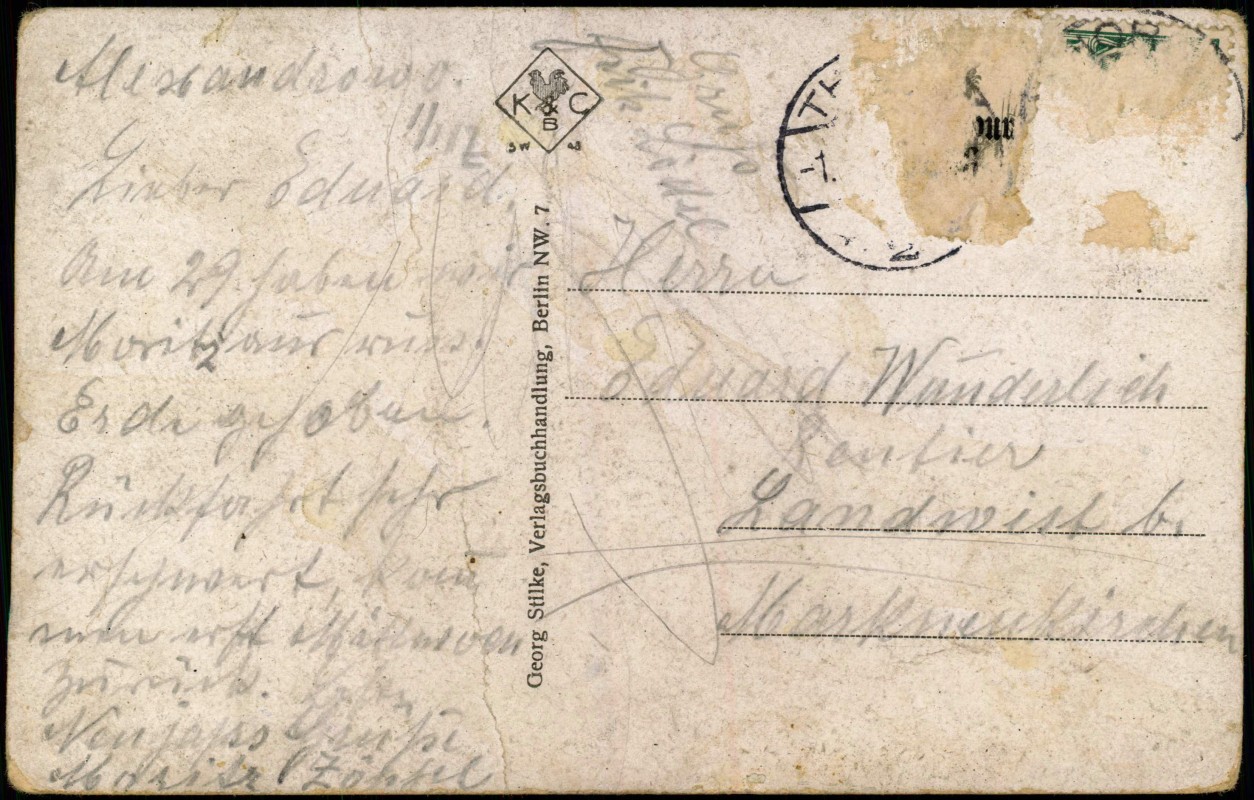 Alexandrowo.
1/1 17
Lieber Eduard.
Am 29. haben wir
Moritz aus russ.
Erde gehoben.
Rückfahrt sehr
erschwert, kom
men erst Mittwoch
zurück.
Neujahrs Grüße
Moritz
K & C
B
SW 48
Gruß
Georg Stilke, Verlagsbuchhandlung, Berlin NW. 7
Herrn
Eduard Wunderlich
Rentier
Landwüst b.
Markneukirchen